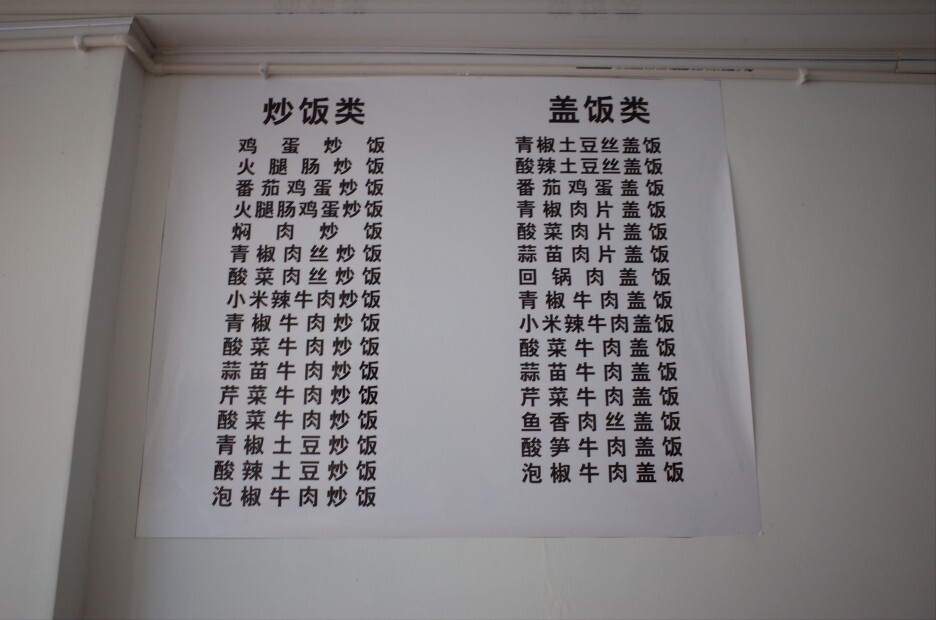 炒饭类
鸡蛋炒饭
火腿肠炒饭
番茄鸡蛋炒饭
火腿肠鸡蛋炒饭
焖肉炒饭
青椒肉丝炒饭
酸菜肉丝炒饭
小米辣牛肉炒饭
青椒牛肉炒饭
酸菜牛肉炒饭
蒜苗牛肉炒饭
芹菜牛肉炒饭
酸菜牛肉炒饭
青椒土豆炒饭
酸辣土豆炒饭
泡椒牛肉炒饭
盖饭类
青椒土豆丝盖饭
酸辣土豆丝盖饭
番茄鸡蛋盖饭
青椒肉片盖饭
酸菜肉片盖饭
蒜苗肉片盖饭
回锅肉盖饭
青椒牛肉盖饭
小米辣牛肉盖饭
酸菜牛肉盖饭
蒜苗牛肉盖饭
芹菜牛肉盖饭
鱼香肉丝盖饭
酸笋牛肉盖饭
泡椒牛肉盖饭